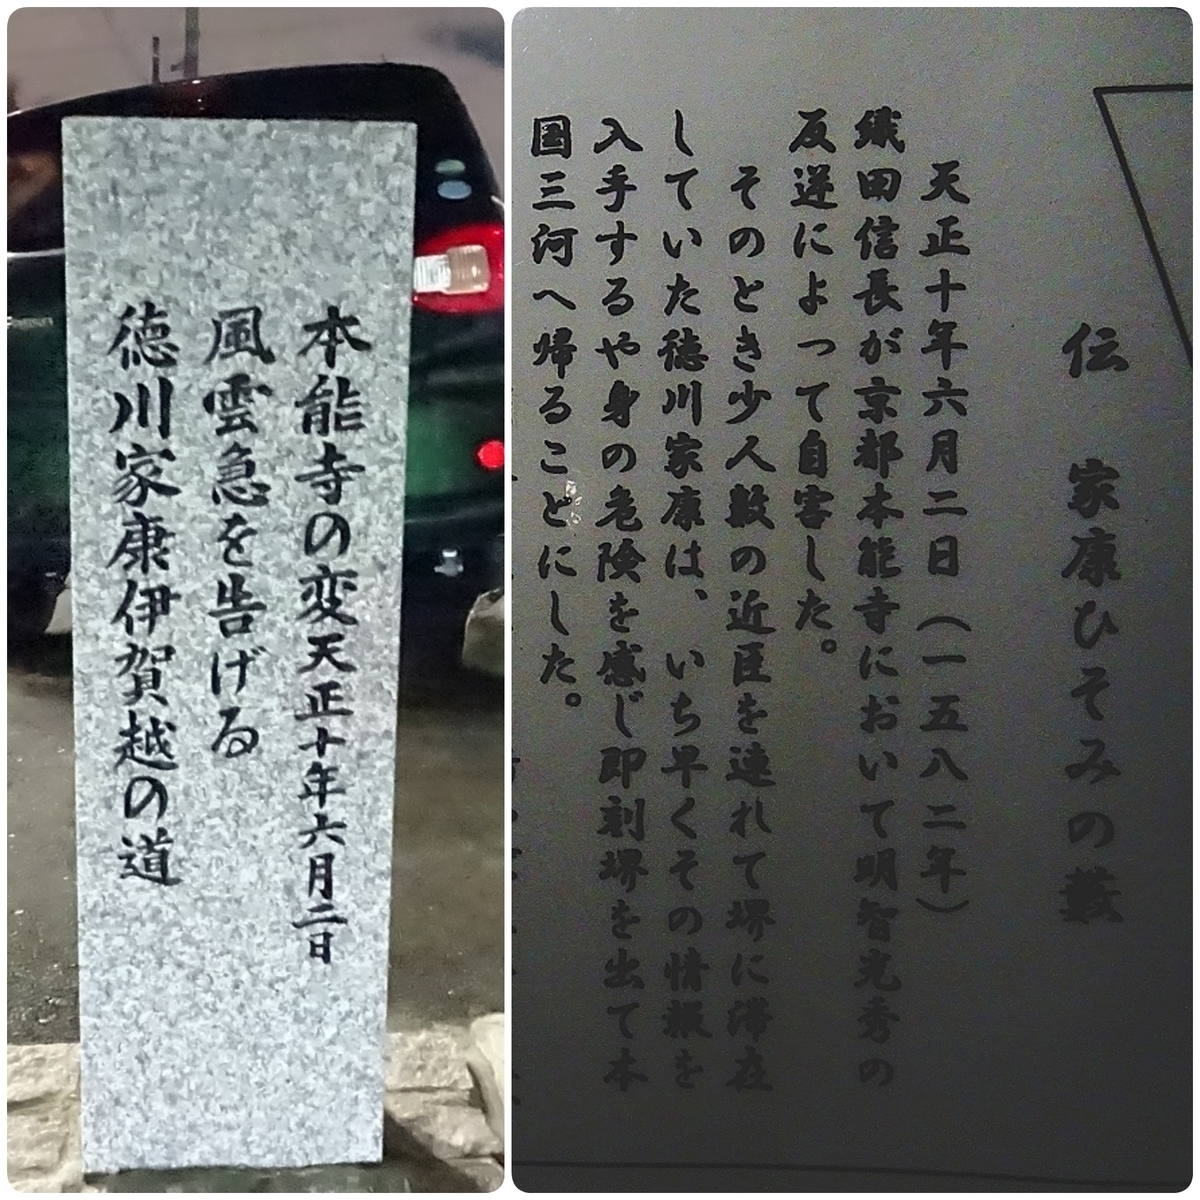 本能寺の変天正十年六月二日
風雲急を告げる
徳川家康伊賀越の道
伝 家康ひそみの藪
天正十年六月二日(一五八二年)
織田信長が京都本能寺において明智光秀の
反逆によって自害した。
そのとき少人数の近臣を連れて堺に滞在
していた徳川家康は、いち早くその情報を
入手するや身の危険を感じ即刻堺を出て本
国三河へ帰ることにした。